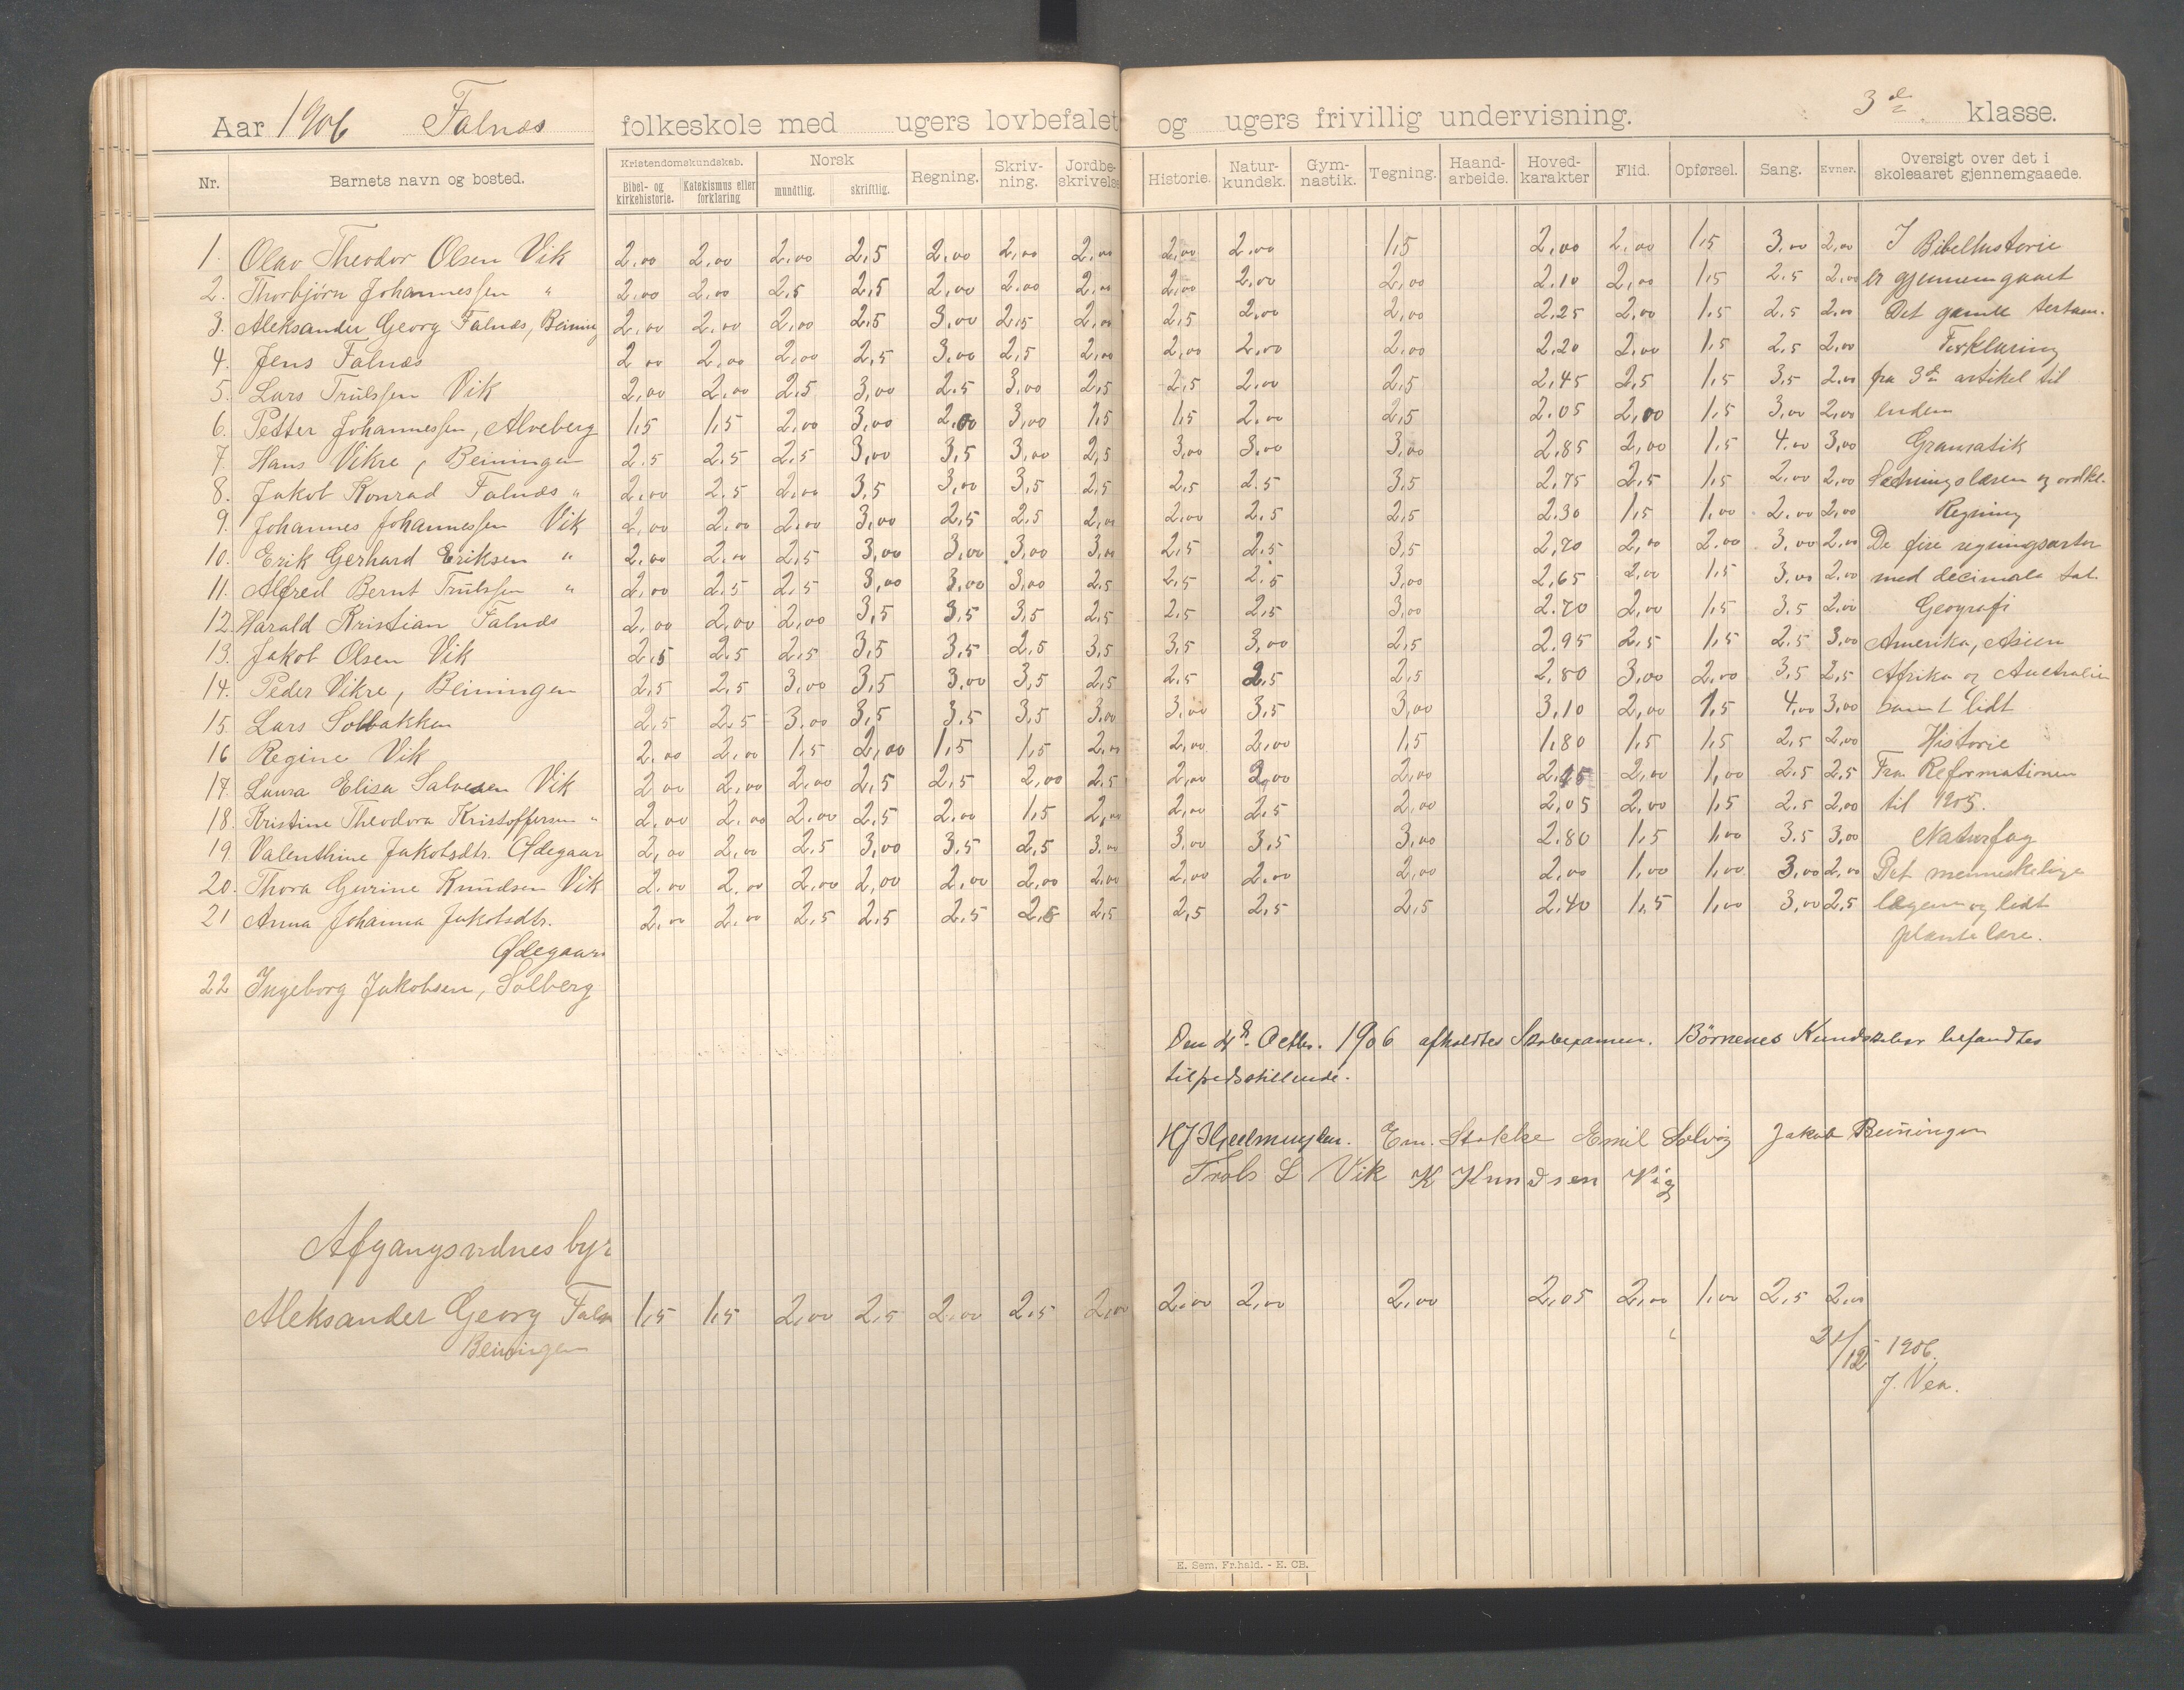 Aar 1906 Falnæs folkeskole med ugers lovbefalet og ugers frivillig undervisning. 3de klasse.
Nr. Barnets navn og bosted. Kristendomskundskab. Bibel- og kirkehistorie. Katekismus eller forklaring Norsk mundtlig. skriftlig. Regning. Skriv-ning. Jordbe-skrivelse Historie. Natur-kundsk. Gym-nastik. Tegning. Haand-arbeide. Hoved-karakter Flid. Opførsel. Sang. Evner. Oversigt over det i skoleaaret gjennemgaaede.
1. Olav Theodor Olsen Vik 2,00 2,00 2,00 2,5 2,00 2,00 2,00 2,00 2,00 1,5 2,00 2,00 1,5 3,00 2,00 I Bibelhistorie
2. Thorbjørn Johannessen " 2,00 2,00 2,5 2,5 2,00 2,00 2,00 2,00 2,00 2,00 2.10 2,00 1,5 2,5 2,00 er gjennemgaaet
3. Aleksander Georg Falnæs, Beining 2,00 2,00 2,00 2,5 3,00 2,5 2,00 2,5 2,00 2,00 2.25 2,00 1,5 2,5 2,00 Det gamle testam.
4. Jens Falnæs 2,00 2,00 2,00 2,5 3,00 2,5 2,00 2,00 2,00 2,00 2.20 2,00 1,5 2,5 2,00 Forklaring
5. Lars Trulssen Vik 2,00 2,00 2,5 3,00 2,5 3,00 2,5 2,5 2,00 2,5 2,45 2,5 1,5 3,5 2,00 fra 3de artikel til
6. Petter Johannessen, Alveberg 1,5 1,5 2,00 3,00 2,00 3,00 1,5 1,5 2,00 2,5 2.05 2,00 1,5 3,00 2,00 enden
7. Hans Vikre, Beiningen 2,5 2,5 2,5 3,00 3,5 3,00 2,5 3,00 3,00 3,00 2,85 2,00 1,5 4,00 3,00 Gramatik
8. Jakob Konrad Falnæs " 2,00 2,5 2,00 3,5 3,00 3,5 2,5 2,5 2,5 3,5 2,75 2,5 1,5 2,00 2,00 Sætningslæren og ordkl.
9. Johannes Johannessen Vik 2,00 2,00 2,00 3,00 2,5 2,5 2,00 2,00 2,5 2,5 2.30 1,5 1,00 2,00 2,00 Regning
10. Erik Gerhard Eriksen " 2,00 2,00 2,5 3,00 3,00 3,00 3,00 2,5 2,5 3,5 2,70 2,00 2,00 3,00 2,00 De fire regningsarter
11. Alfred Bernt Trulssen " 2,00 2,5 2,5 3,00 3,00 3,00 2,5 2,5 2,5 3,00 2,65 2,00 1,5 3,00 2,00 med decimale tal.
12. Harald Kristian Falnæs 2,00 2,00 2,00 3,5 3,5 3,5 2,5 2,5 2,5 3,00 2.70 2,00 1,5 3,5 2,00 Geografi
13. Jakob Olsen Vik 2,5 2,5 2,5 3,5 3,5 2,5 3,5 3,5 3,00 2,5 2.95 2,5 1,5 2,5 3,00 Amerika, Asien
14. Peder Vikre, Beiningen 2,5 2,5 3,00 3,5 3,00 3,5 2,5 2,5 2,5 2,5 2,80 3,00 2,00 3,5 2,5 Afrika og Australien
15. Lars Solbakken 2,5 2,5 3,00 3,5 3,5 3,5 3,00 3,00 3,5 3,00 3,10 2,00 1,5 4,00 3,00 samt lidt
16 Regine Vik 2,00 2,00 1,5 2,00 1,5 1,5 2,00 2,00 2,00 1,5 1,80 1,5 1,5 2,5 2,00 Historie
17. Laura Elisa Salvesen Vik 2,00 2,00 2,00 2,5 2,5 2,00 2,5 2,00 2,00 2,00 2,15 2,00 1,00 2,5 2,5 Fra Reformationen
18. Kristine Theodora Kristoffersen " 2,00 2,00 2,00 2,5 2,00 1,5 2,00 2,00 2,5 2,00 2,05 2,00 1,5 2,5 2,00 til 1905.
19 Valenthine Jakobsdtr. Ødegaar 2,00 2,00 2,5 3,00 3,5 2,5 3,00 3,00 3,5 3,00 2.80 1,5 1,00 3,5 3,00 Naturfag
20. Thora Gurine Knudsen Vik 2,00 2,00 2,00 2,00 2,00 2,00 2,00 2,00 2,00 2,00 2,00 1,00 1,00 3,00 2,00 Det menneskelige
21 Anna Johanna Jakobsdtr. 2,00 2,00 2,5 2,5 2,5 2,5 2,5 2,5 2,5 2,5 2.40 1,5 1,00 3,00 2,5 legem og lidt
Ødegaar plantelære.
22 Ingeborg Jakobsen, Solberg
Den 4de Octbr. 1906 afholdtes Skolexamen. Börnenes Kundskaber befandtes
tilfredsstillende.
HJ Hjelmuylen. Em. Stakke Emil Solvig Jakob Beiningen
Trols L Vik K Knudsen Vig
Afgangsvidnesbyr
Aleksander Georg Faln 1,5 1,5 2,00 2,5 2,00 2,5 2,00 2,00 2,00 2,00 2,05 2,00 1,00 2,5 2,00
Beiningen 21/12 1906.
J. Vea.
E. Sem. Fr.hald. - E. CB.